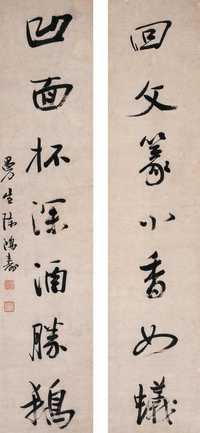 回文篆小香如蟻
凹面杯深酒勝鵝
曼生陳鴻壽